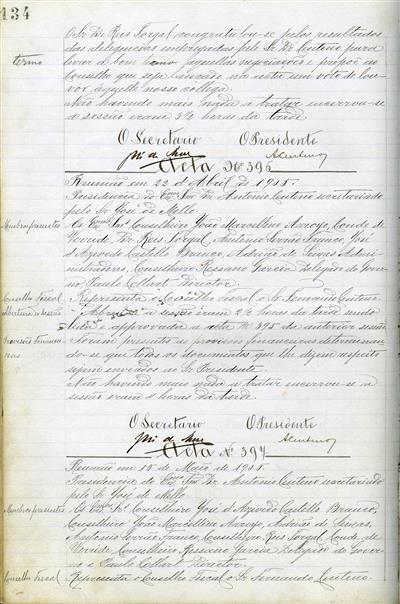 134
O Sr. Dr. Reis Torgal congratulou-se pelos resultados
das deligencias empregadas pelo Sr. Dr. Centeno para
termo
levar a bom termo aquellas negociações e propôz ao
Conselho que seja lançado na acta um voto de lou-
vor áquelle nosso collega.
Não havendo mais nada a tratar encerrou-se
a sessão eram 3½ horas da tarde
O Secretario O Presidente
José de Mello ACenteno
Acta Nº 396
Reunião em 22 d'Abril de 1905.
Presidencia do Exmo Snr. Dr. Antonio Centeno secretariado
pelo Sr. José de Mello.
Membros presentes
Os Exmos Snrs. Conselheiro João Marcellino Arroyo, Conde de
Verride, Dr. Reis Torgal, Antonio Serrão Franco, José
d'Azevedo Castello Branco, Adrião de Seixas Admi-
nistradores, Conselheiro Pessano Garcia Delegado do Gover-
no, Paulo Collart Director.
Conselho Fiscal
Representa o Conselho Fiscal o Sr. Fernando Centeno.
Abertura da Sessão
Aberta a sessão eram 2½ horas da tarde sendo
lida e approvada a acta Nº 395 da anterior sessão
Provisões Financei-
ras
Foram presentes as provisões financeiras determinan-
do-se que todos os documentos que lhe dizem respeito
sejam enviados ao Sr. Presidente.
Não havendo mais nada a tratar encerrou-se a
sessão eram 4 horas da tarde.
O Secretario O Presidente
José de Mello ACenteno
Acta Nº 397
Reunião em 15 de Maio de 1905.
Presidencia do Exmo Snr. Dr. Antonio Centeno secretariado
pelo Sr. José de Mello
Membros presentes
Os Exmos Srs. Conselheiro José d'Azevedo Castello Branco,
Conselheiro João Marcellino Arroyo, Adrião de Seixas,
Antonio Serrão Franco, Conselheiro Reis Torgal, Conde de
Verride, Conselheiro Pessano Garcia Delegado do Gover-
no e Paulo Collart Director.
Conselho Fiscal
Representa o Conselho Fiscal o Sr. Fernando Centeno.